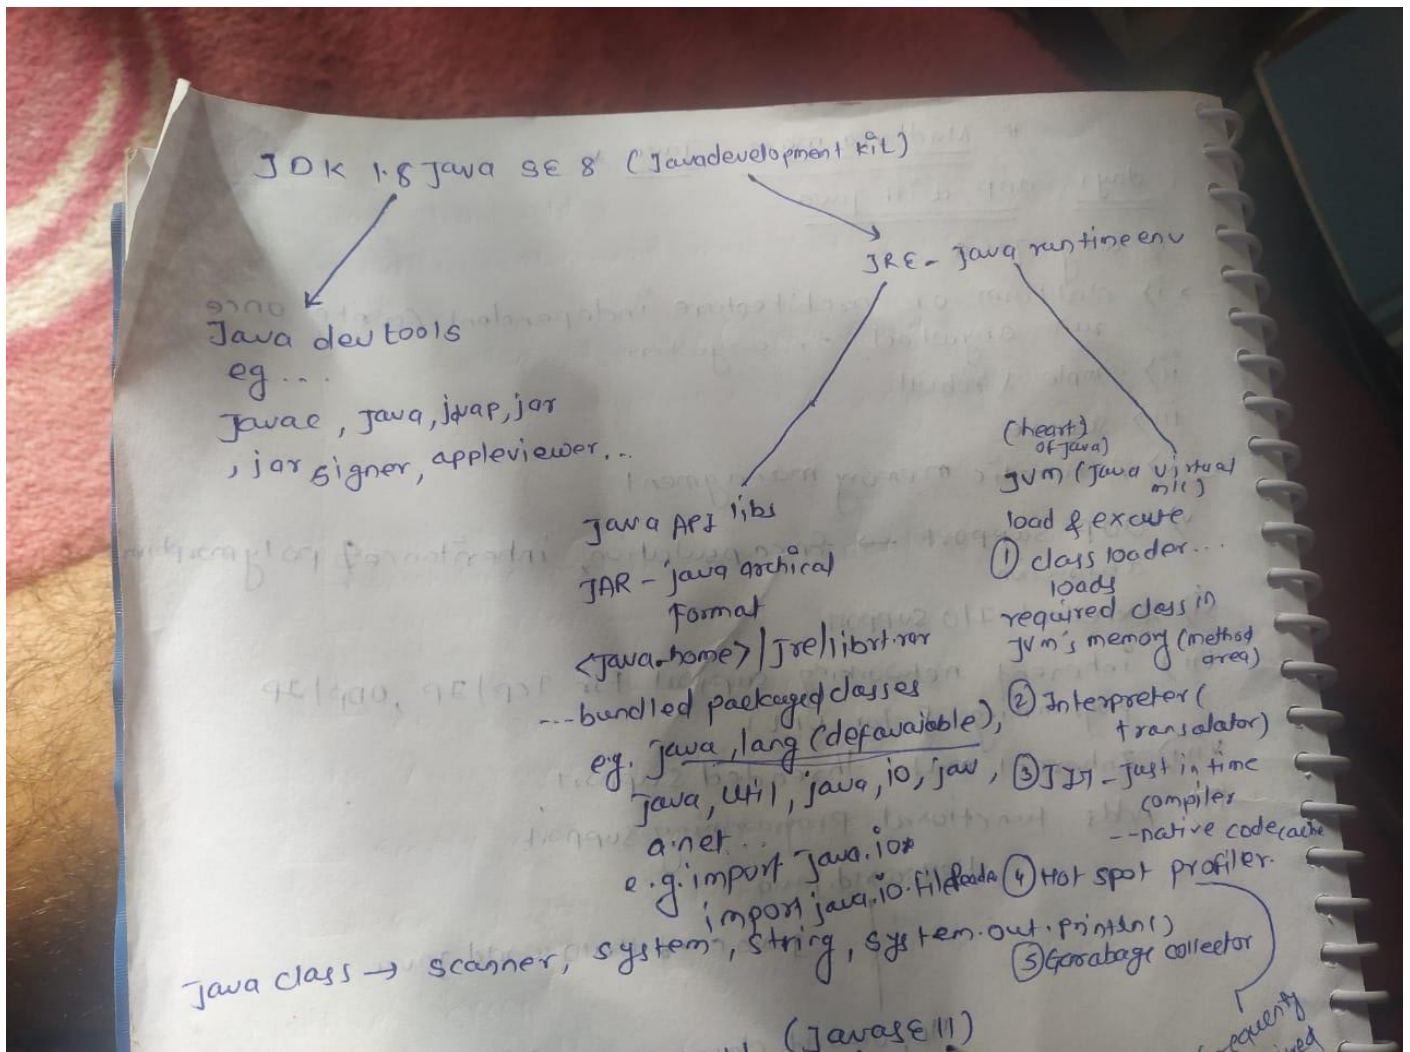 JDK 1.8 Java SE 8 (Javadevelopment kit)
JRE - Java runtime env
Java dev tools
eg ....
Javac, Java, jvap, jar
, jar signer, appleviewer...
Java API libs
JAR - java archical
Format
<Java-home>|Jre|librt.rar
...bundled packaged classes
eg. java, lang (defavaiable),
java, util, java, io, jav,
a.net...
e.g. import java.io*
import java.io.file
(heart)
of Java)
JVM (Java virtual
m/c)
load & excute
① class loader...
loads
required class in
JVM's memory (method
area)
② Interpreter (
transalator)
③ JIT - Just in time
compiler
--native code cache
④ Hot spot profiler.
⑤ Garabage collector
Java class → scanner, system, String, system.out.println()
(JavaSE 11)